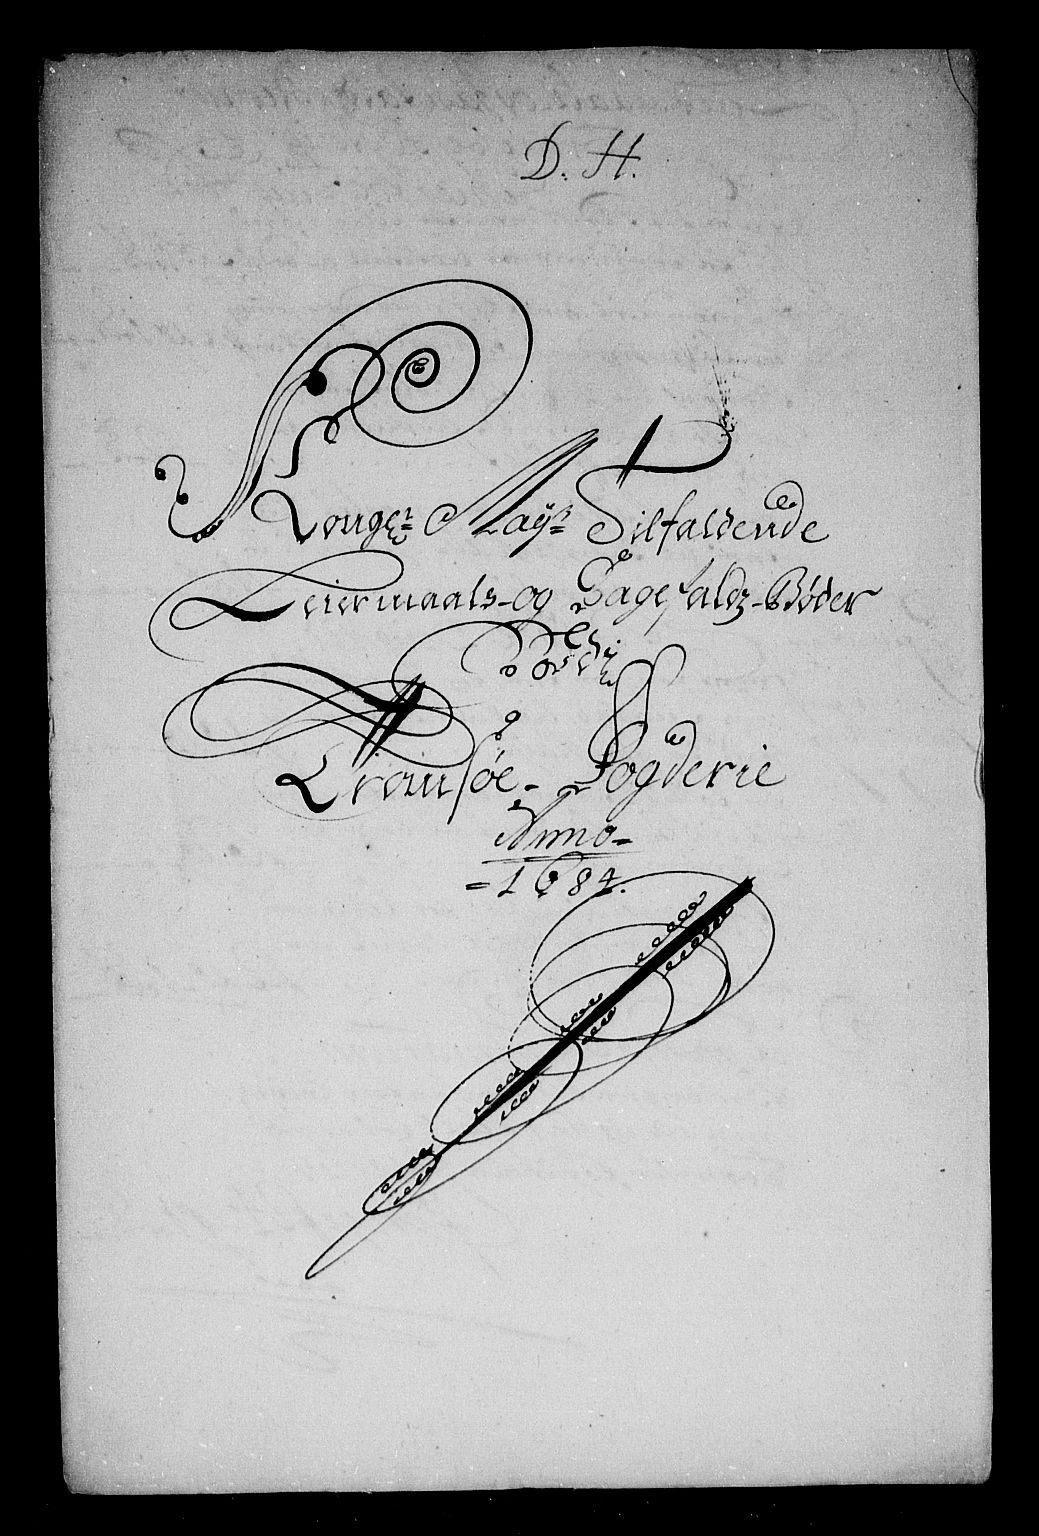 D. H.
Kongel: May:ts Tilfaldende
Leiermaals-og Sagefaldz-Bøder
Tromsøe-Fogderie
Anno-
=1684.